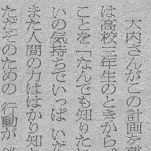 大内さんがこの計画
は高校三年生のときから
ことを「なんでも知りた
いの気持ちでいっぱい
また人間の力はばかり知
ただそのための 行動が